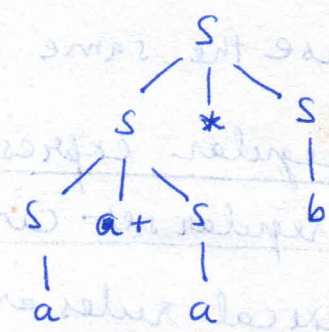 S
S * S
S a+ S b
a a